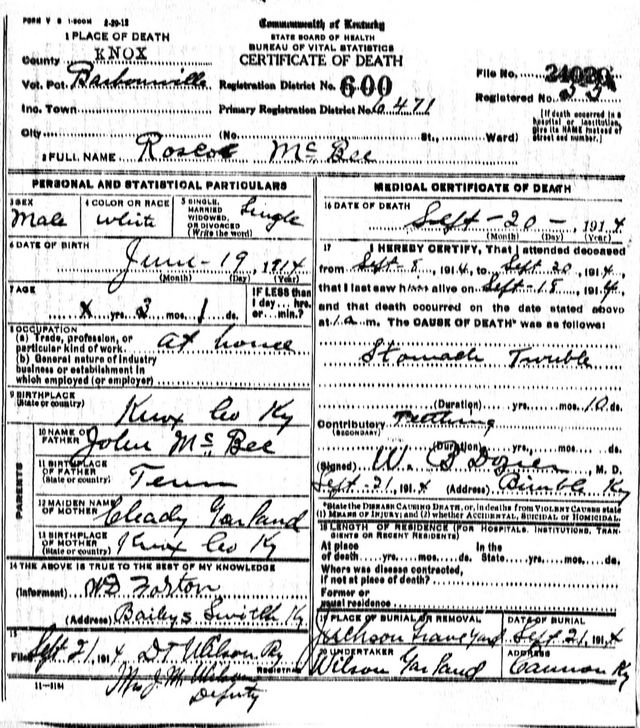 FORM V S 1-500M 2-20-12
1 PLACE OF DEATH
Commonwealth of Kentucky
STATE BOARD OF HEALTH
BUREAU OF VITAL STATISTICS
CERTIFICATE OF DEATH
County KNOX
Vot. Pct. Barbourville
Registration District No. 600
File No. 24020
Inc. Town
Primary Registration District No. 6471
Registered No. 33
City (No. St., Ward)
[If death occurred in a hospital or institution, give its NAME instead of street and number.]
2 FULL NAME Roscoe McBee
PERSONAL AND STATISTICAL PARTICULARS
3 SEX Male
4 COLOR OR RACE White
5 SINGLE, MARRIED, WIDOWED, OR DIVORCED (Write the word) Single
6 DATE OF BIRTH June - 19, 1914
(Month) (Day) (Year)
7 AGE x yrs. 3 mos. 1 ds.
IF LESS than 1 day, hrs. or min.?
8 OCCUPATION
(a) Trade, profession, or particular kind of work at house
(b) General nature of industry business or establishment in which employed (or employer)
9 BIRTHPLACE
(State or country) Knox Co Ky
PARENTS
10 NAME OF FATHER John McBee
11 BIRTHPLACE OF FATHER
(State or country) Tenn
12 MAIDEN NAME OF MOTHER Garland
13 BIRTHPLACE OF MOTHER
(State or country) Knox Co Ky
14 THE ABOVE IS TRUE TO THE BEST OF MY KNOWLEDGE
(Informant)
(Address) Baileys Switch Ky
15
Filed Sept 21 1914 D.T. Wilson Ry
REGISTRAR
Mrs J M Wilson
Deputy
11-1184
MEDICAL CERTIFICATE OF DEATH
16 DATE OF DEATH
Sept - 20 - , 1914
(Month) (Day) (Year)
17 I HEREBY CERTIFY, That I attended deceased
from Sept - 8, 1914, to Sept 20, 1914,
that I last saw him alive on Sept - 18, 1914,
and that death occurred on the date stated above
at 1 a m. The CAUSE OF DEATH* was as follows:
Stomach Trouble
(Duration) yrs. mos. 10 ds.
Contributory Teething
(SECONDARY)
(Duration) yrs. mos. ds.
(Signed) W. B. M. D.
Sept - 21, 1914 (Address) Bimble Ky
*State the DISEASE CAUSING DEATH, or, in deaths from VIOLENT CAUSES state (1) MEANS OF INJURY; and (2) whether ACCIDENTAL, SUICIDAL or HOMICIDAL.
18 LENGTH OF RESIDENCE (FOR HOSPITALS, INSTITUTIONS, TRANSIENTS OR RECENT RESIDENTS)
At place of death yrs. mos. ds. In the State yrs. mos. ds.
Where was disease contracted, if not at place of death?
Former or usual residence
19 PLACE OF BURIAL OR REMOVAL
Jackson Grave Yard
DATE OF BURIAL
Sept 21, 1914
20 UNDERTAKER
Wilson Garland
ADDRESS
Cannon Ky